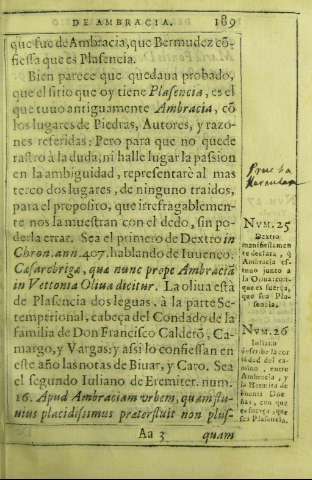 DE AMBRACIA. 189
que fue de Ambracia, que Bermudez cõ-
fiessa que es Plasencia.
Bien parece que quedaua probado,
que el sitio que oy tiene Plasencia, es el
que tuuo antiguamente Ambracia, cõ
los lugares de Piedras, Autores, y razo-
nes referidas: Pero para que no quede
rastro à la duda, ni halle lugar la passion
en la ambiguidad, representarè al mas
terco dos lugares, de ninguno traidos,
para el proposito, que irrefragablemen-
te nos la muestran con el dedo, sin po-
derla errar. Sea el primero de Dextro in
Chron. ann. 407. hablando de Iuuenco.
Cæsarobrigæ, quæ nunc prope Ambraciã
in Vettonia Oliua dicitur. La oliua està
de Plasencia dos leguas, à la parte Se-
temptrional, cabeça del Condado de la
familia de Don Francisco Calderõ, Ca-
margo, y Vargas: y assi lo confiessan en
este año las notas de Biuar, y Caro. Sea
el segundo Iuliano de Eremiter. num.
16. Apud Ambraciam vrbem, quam flu-
uius placidissimus præterfluit non plus-
Aa 3 quam
NVM. 25
Dextro
manifiestamen
te declara, q̃
Ambracia es-
tuuo junto a
la Oliua: con
que es fuerça,
que sea Pla-
sencia.
NVM. 26
Iuliano
describe la cor
tedad del ca-
mino, entre
Ambracia, y
la Hermita de
Fuente Due
ñas, con que
es fuerça, que
sea Plasencia.